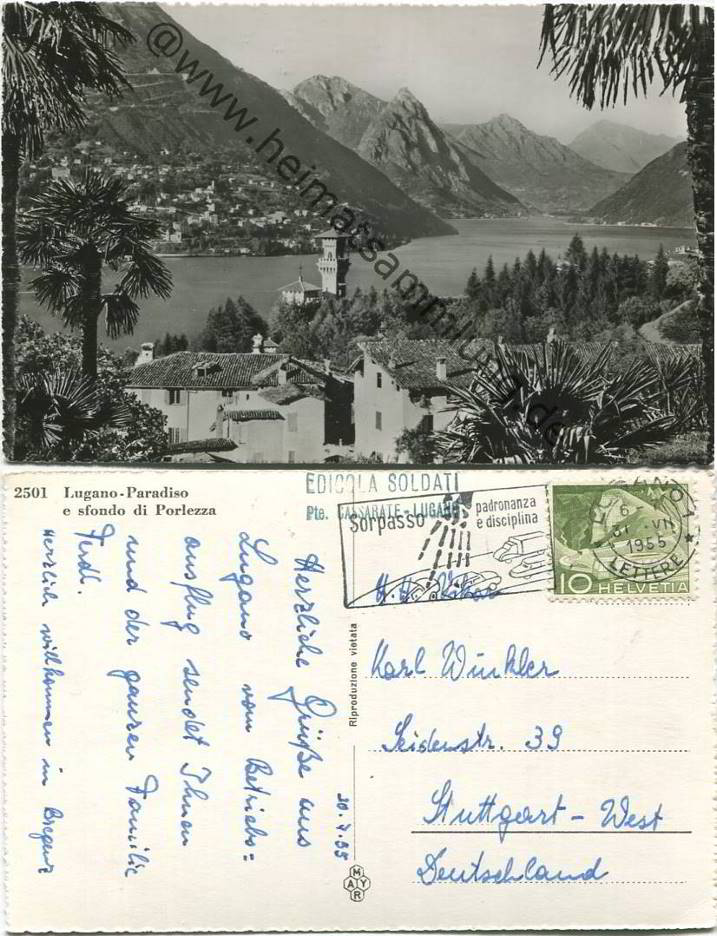 @www.heimatsammlung.de
2501 Lugano-Paradiso
e sfondo di Porlezza
EDICOLA SOLDATI
Pte. CASSARATE-LUGANO
Sorpasso
padronanza
e disciplina
LUGANO 1
6
31.VII
1955
LETTERE
10 HELVETIA
Herzliche Grüße aus
Lugano vom Betriebs=
ausflug sendet Ihnen
und der ganzen Familie
Ferd.
Herzlich willkommen in Bregenz
30.7.55
Riproduzione vietata
MAYR
H. H. Vikar
Karl Winkler
Seidenstr. 39
Stuttgart - West
Deutschland